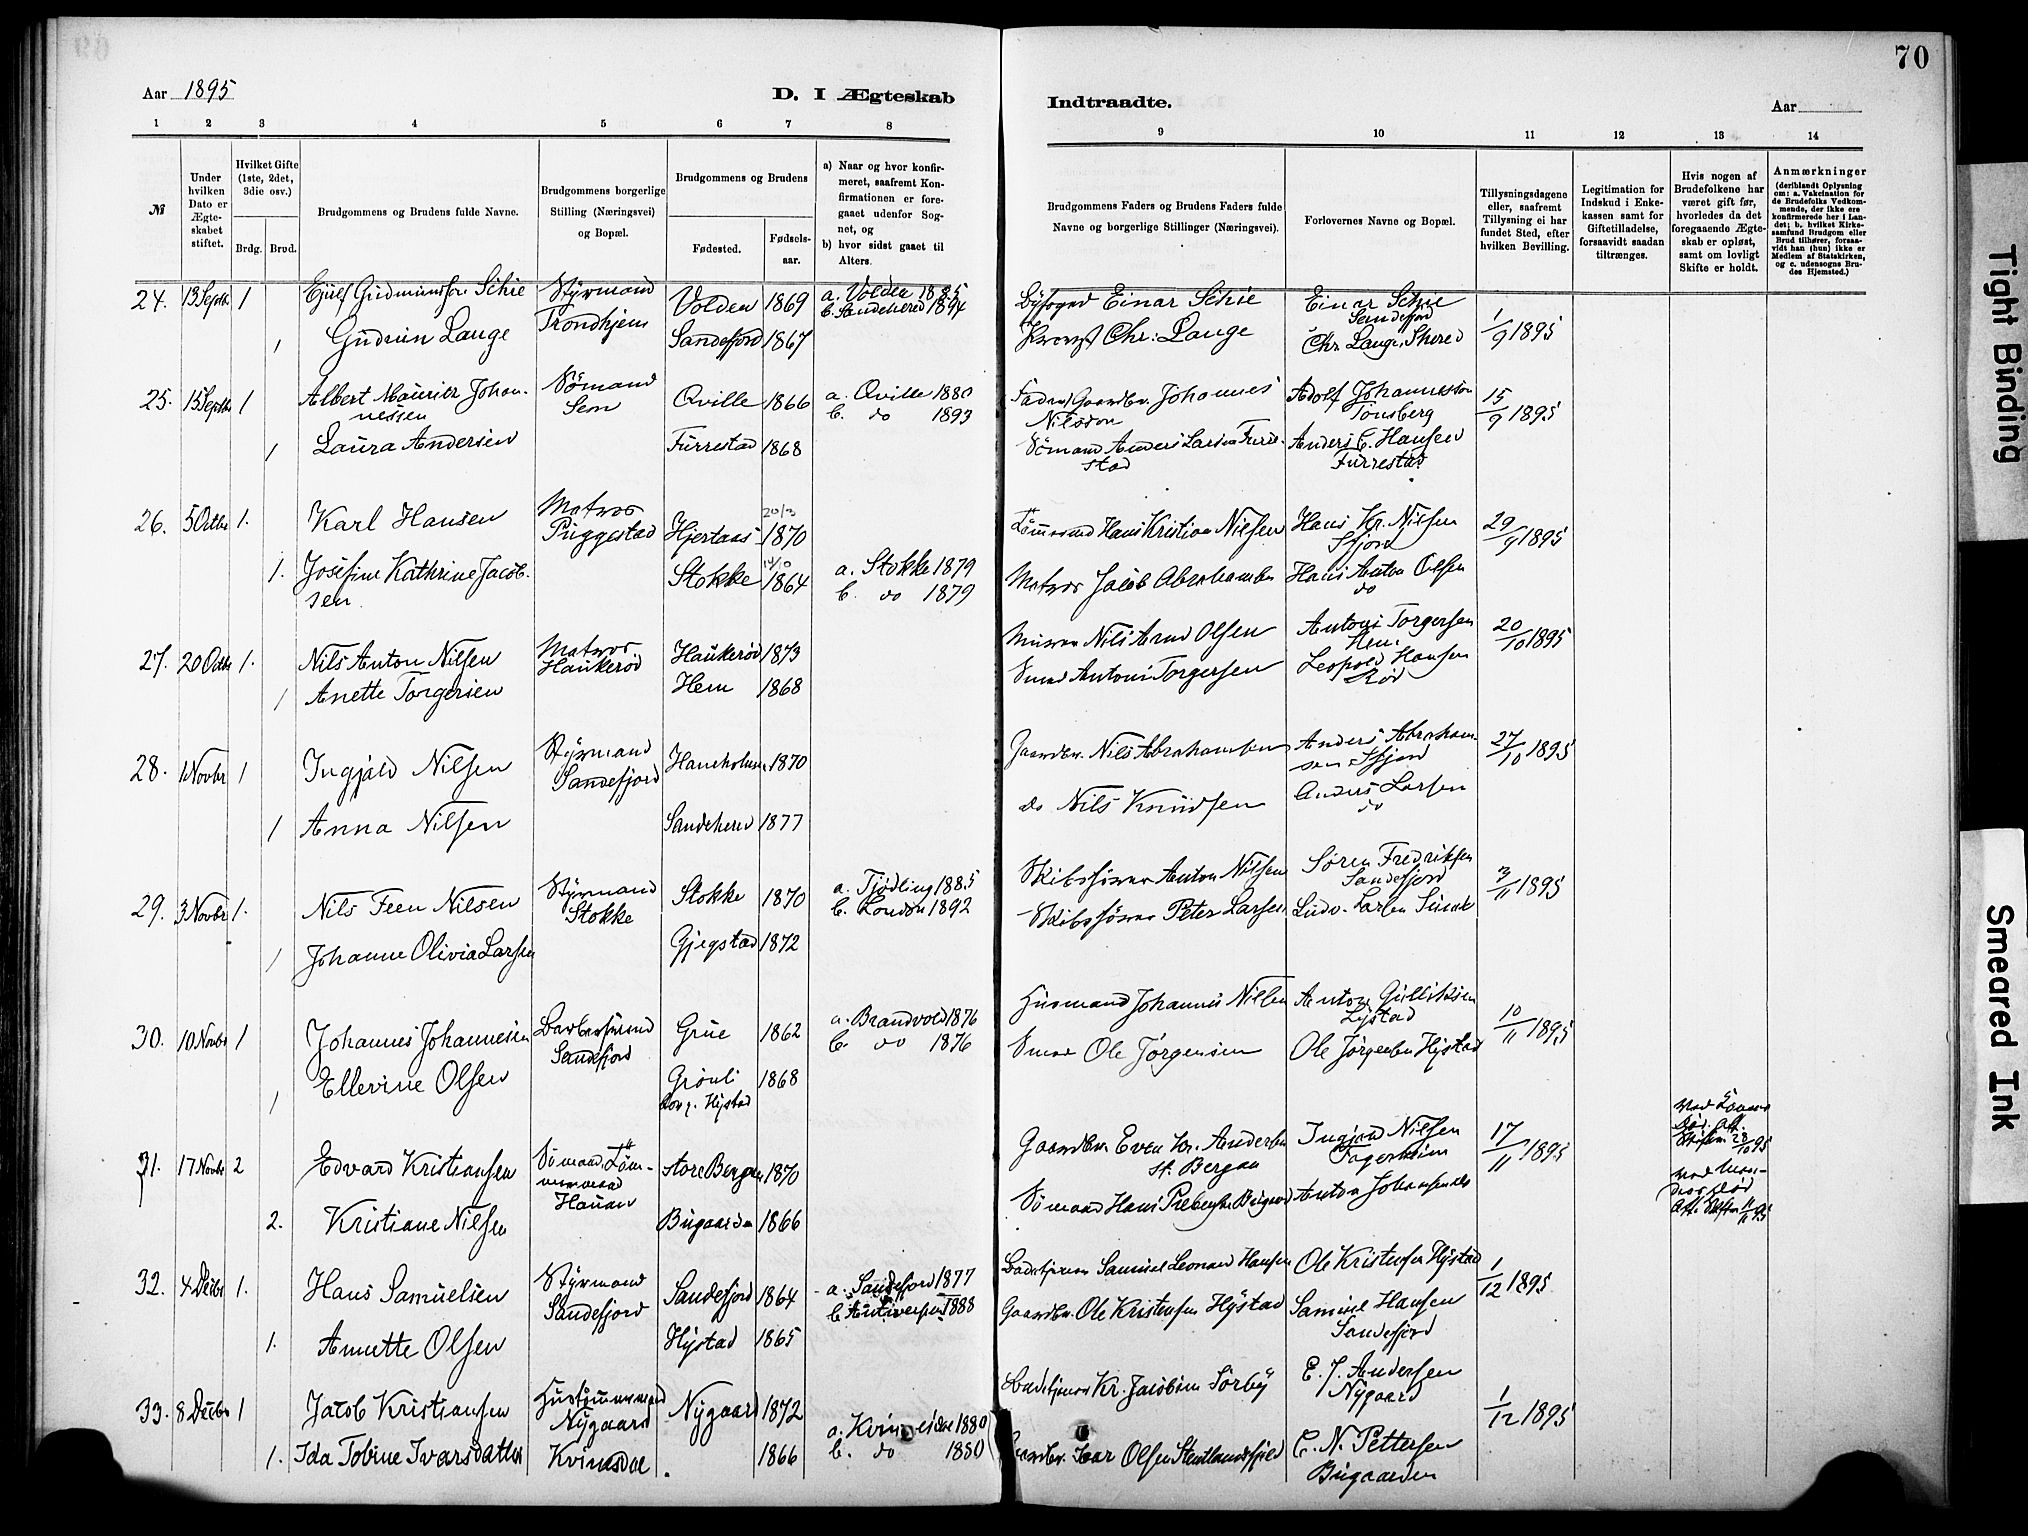 70
Aar 1895
D. I Ægteskab
Indtraadte.
Aar
1 2 3 4 5 6 7 8 9 10 11 12 13 14
№
Under hvilken Dato er Ægteskabet stiftet.
Hvilket Gifte (1ste, 2det, 3die osv.)
Brdg. Brud.
Brudgommens og Brudens fulde Navne.
Brudgommens borgerlige Stilling (Næringsvei) og Bopæl.
Brudgommens og Brudens
Fødested. Fødselsaar.
a) Naar og hvor konfirmeret, saafremt Konfirmationen er foregaaet udenfor Sognet, og
b) hvor sidst gaaet til Alters.
Brudgommens Faders og Brudens Faders fulde Navne og borgerlige Stillinger (Næringsvei).
Forlovernes Navne og Bopæl.
Tillysningsdagene eller, saafremt Tillysning ei har fundet Sted, efter hvilken Bevilling.
Legitimation for Indskud i Enkekassen samt for Giftetilladelse, forsaavidt saadan tiltrænges.
Hvis nogen af Brudefolkene har været gift før, hvorledes da det foregaaende Ægteskab er opløst, samt om lovligt Skifte er holdt.
Anmærkninger
(deriblandt Oplysning om: a. Vakcination for de Brudefolks Vedkommende, der ikke ere konfirmerede her i Landet; b. hvilket Kirkesamfund Brudgom eller Brud tilhører, forsaavidt han (hun) ikke er Medlem af Statskirken, og c. udensogns Brudes Hjemsted.)
24. 13 Septbr 1 Schie Styrmand Volden 1869 a. Volden 1885 Einar Schie Einar Schie 1/9 1895
Trondhjem b. Sandeherred 1894 Sandefjord
1 Gudrun Lange Sandefjord 1867 Chr: Lange Chr Lange,
25. 15 Septbr 1 Albert Johan- Sømand Qville 1866 a. Qville 1880 Gaardbr. Johannes Adolf Johannesson 15/9 1895
nessen Sem b. do 1893 Nilsson Tønsberg
1 Laura Andersen Furrestad 1868 Sømand Anders Larsen Furre- Anders C. Hansen
stad Furrestad
26. 5 Octbr 1. Karl Hansen Matros Hjertaas 1870 Hans Kristian Nilsen Hans Kr. Nilsen 29/9 1895
Puggestad Sfjord
1. Josefine Kathrine Jacob- Stokke 1864 a. Stokke 1879 Matros Jacob Abrahamsen Hans Anton Olsen
sen b. do 1879 do
27. 20 Octbr 1. Nils Anton Nilsen Matros Haukerød 1873 Nils Olsen Antoni Torgersen 20/10 1895
Haukerød Hem
1 Anette Torgersen Hem 1868 Antoni Torgersen Leopold Hansen
Rød
28. 1 Novbr 1 Ingjald Nilsen Styrmand Haneholmen 1870 Gaardbr. Nils Abrahamsen Anders Abraham- 27/10 1895
Sandefjord sen Sfjord
1 Anna Nilsen Sandeherred 1877 do Nils Knudsen Anders Larsen
do
29. 3 Novbr 1. Nils Feen Nilsen Styrmand Stokke 1870 a. Tjødling 1885 Skibsfører Anton Nilsen Søren Fredriksen 3/11 1895
Stokke b. London 1892 Sandefjord
1 Johanne Olivia Larsen Gjegstad 1872 Skibsfører Peter Larsen Ludv. Larsen
30. 10 Novbr 1 Johannes Johannesen Sandefjord Grue 1862 a. Brandvold 1876 Husmand Johannes Nilsen Anton Gulliksen 10/11 1895
b. do 1876
1 Ellevine Olsen Grønli 1868 Ole Jørgensen Ole Jørgensen Hystad
Hystad
31. 17 Novbr 2 Edvard Kristiansen Sømand Tøm- store Bergan 1870 Gaardbr. Even Kr. Andersen Ingjald Nilsen 17/11 1895
mermand st. Bergan Fagerheim
Hauan
2. Kristiane Nilsen Bugaarden 1866 Sømand Hans Anton Johansen do
32. 4 Decbr 1. Hans Samuelsen Styrmand Sandefjord 1864 a. Sandefjord 1877 Samuel Leonard Hansen Ole Kristensen Hystad 1/12 1895
Sandefjord b. Antwerpen 1888
1. Annette Olsen Hystad 1865 Gaardbr. Ole Kristensen Hystad Samuel Hansen
Sandefjord
33. 8 Decbr 1 Jacob Kristiansen Hustømmermand Nygaard 1872 Kr. Jacobsen Sørby E. J. Andersen 1/12 1895
Nygaard Nygaard
1. Ida Tobine Ivarsdatter Kvinesdal 1866 b. do 1880 Gaardbr. Ivar Olsen C. N. Pettersen
Bugaarden
Tight Binding
Smeared Ink